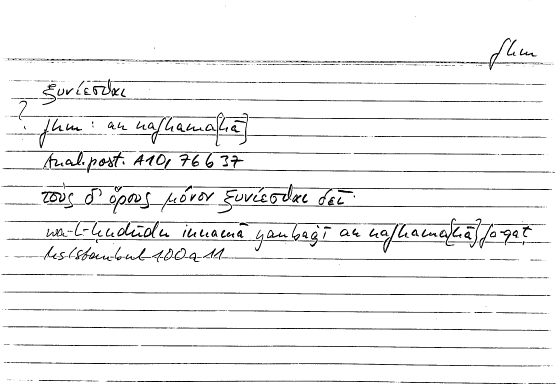 fhm
ξυνίεσθαι
?
fhm : an nafhama[hā]
Anal. post. A10, 76 b 37
τοὺς δ' ὅρους μόνον ξυνίεσθαι δεῖ·
wa-l-ḥudūdu innamā yanbaġī an nafhama[hā] fa-qaṭ
Ms Istanbul 100 a 11